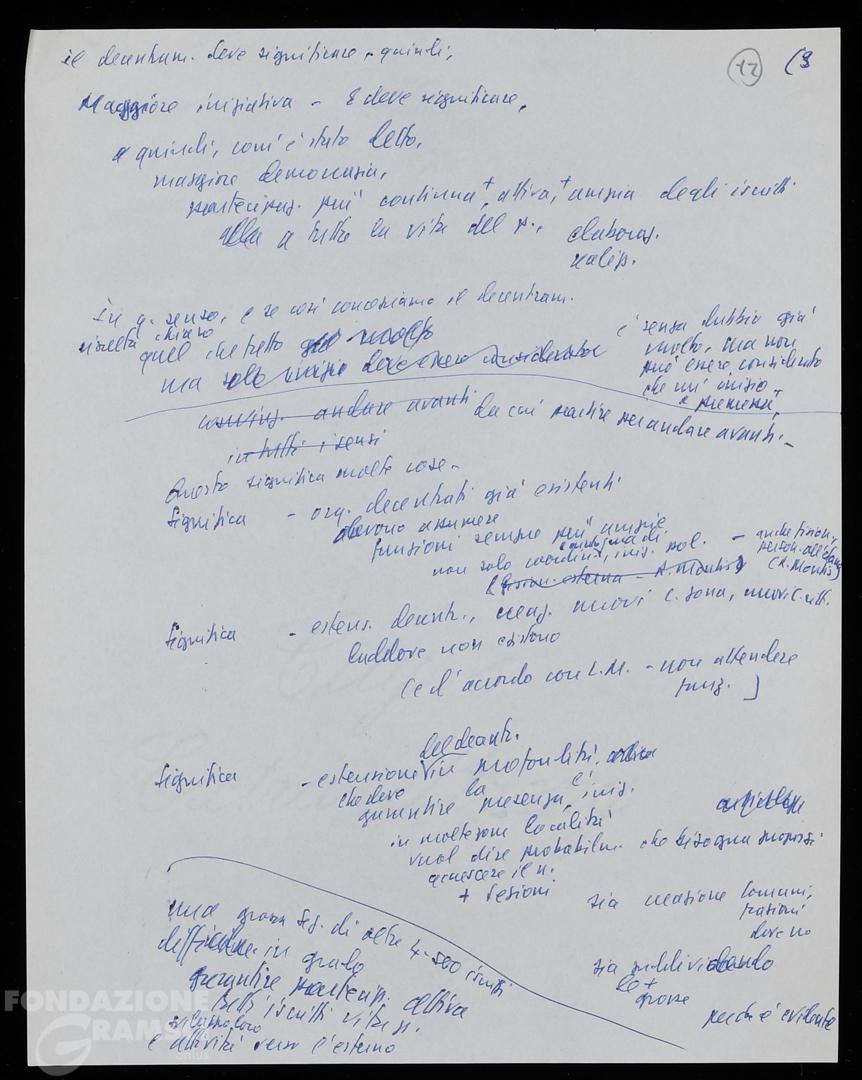 il decentram. deve significare, quindi,
12 (3
Maggiore iniziativa - E deve significare,
e quindi, com'è stato detto,
maggiore democrazia,
partecipaz. più continua, + attiva, + ampia degli iscritti
alla a tutta la vita del p., elaboraz.
realizz.
In q. senso, e se così concepiamo il decentram.
risulta chiaro
quel che fatto già molto
ma solo inizio deve essere considerato
è senza dubbio già
molto, ma non
può essere considerato
che un inizio
e premessa
andare avanti da cui partire per andare avanti. -
in tutti i sensi
Questo significa molte cose -
Significa - org. decentrati già esistenti
devono assumere
funzioni sempre più ampie
non solo coordin., iniz. pol. - anche
(A. Montis)
Significa - estens. decentr., creaz. nuovi C. zona, nuovi C.
laddove non esistono
(e d'accordo con L.M. - non attendere
funz. )
del decentr.
Significa - estensione in profondità,
che deve
garantire la presenza, e iniz.
in molte zone località
vuol dire probabilm. che bisogna proporsi
accrescere il n.
+ sezioni
sia creazione comuni,
frazioni
dove no
sia suddividendo
le +
grosse
perché è evidente
una grossa sez. di oltre 4-500 iscritti
difficilm. in grado
garantire partecip. attiva
tutti iscritti vita p.
sviluppo loro
e attività verso l'esterno
FONDAZIONE
GRAMSCI
onlus